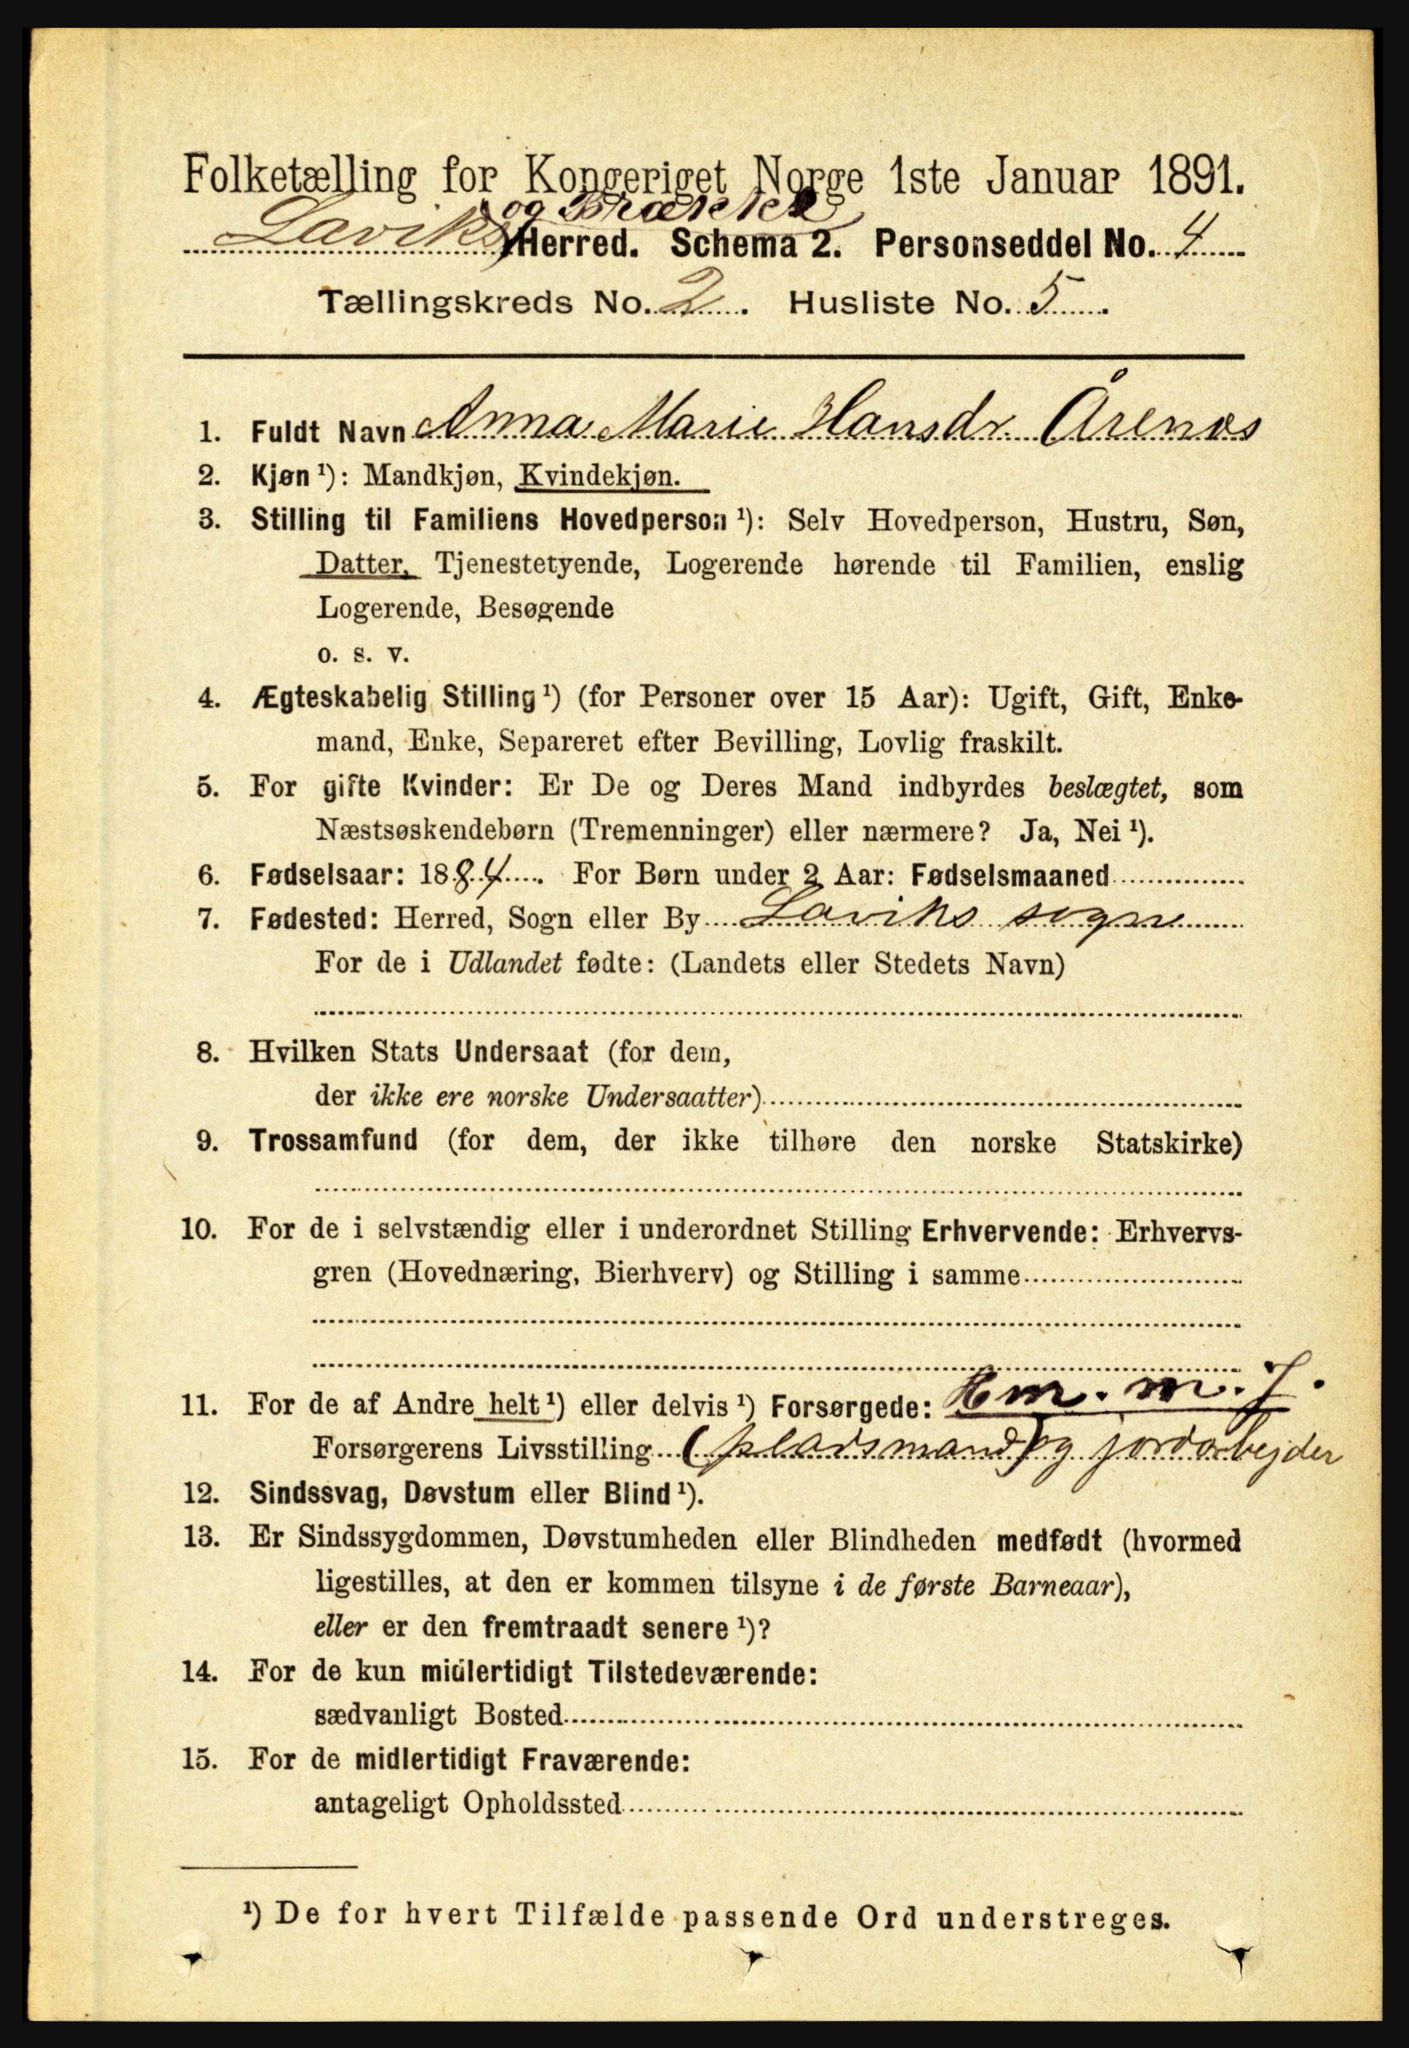 Folketælling for Kongeriget Norge 1ste Januar 1891.
og Brække
Laviks Herred. Schema 2. Personseddel No. 4
Tællingskreds No. 2. Husliste No. 5.
1. Fuldt Navn Anna Marie Hansdr Årenæs
2. Kjøn ¹): Mandkjøn, Kvindekjøn.
3. Stilling til Familiens Hovedperson ¹): Selv Hovedperson, Hustru, Søn,
Datter, Tjenestetyende, Logerende hørende til Familien, enslig
Logerende, Besøgende
o. s. v.
4. Ægteskabelig Stilling ¹) (for Personer over 15 Aar): Ugift, Gift, Enke-
mand, Enke, Separeret efter Bevilling, Lovlig fraskilt.
5. For gifte Kvinder: Er De og Deres Mand indbyrdes beslægtet, som
Næstsøskendebørn (Tremenninger) eller nærmere? Ja, Nei ¹).
6. Fødselsaar: 1884. For Børn under 2 Aar: Fødselsmaaned
7. Fødested: Herred, Sogn eller By Laviks sogn
For de i Udlandet fødte: (Landets eller Stedets Navn)
8. Hvilken Stats Undersaat (for dem,
der ikke ere norske Undersaatter)
9. Trossamfund (for dem, der ikke tilhøre den norske Statskirke)
10. For de i selvstændig eller i underordnet Stilling Erhvervende: Erhvervs-
gren (Hovednæring, Bierhverv) og Stilling i samme
11. For de af Andre helt ¹) eller delvis ¹) Forsørgede: Hm. m. J.
Forsørgerens Livsstilling (pladsmand) og jordarbejder
12. Sindssvag, Døvstum eller Blind ¹).
13. Er Sindssygdommen, Døvstumheden eller Blindheden medfødt (hvormed
ligestilles, at den er kommen tilsyne i de første Barneaar),
eller er den fremtraadt senere ¹)?
14. For de kun midlertidigt Tilstedeværende:
sædvanligt Bosted
15. For de midlertidigt Fraværende:
antageligt Opholdssted
¹) De for hvert Tilfælde passende Ord understreges.